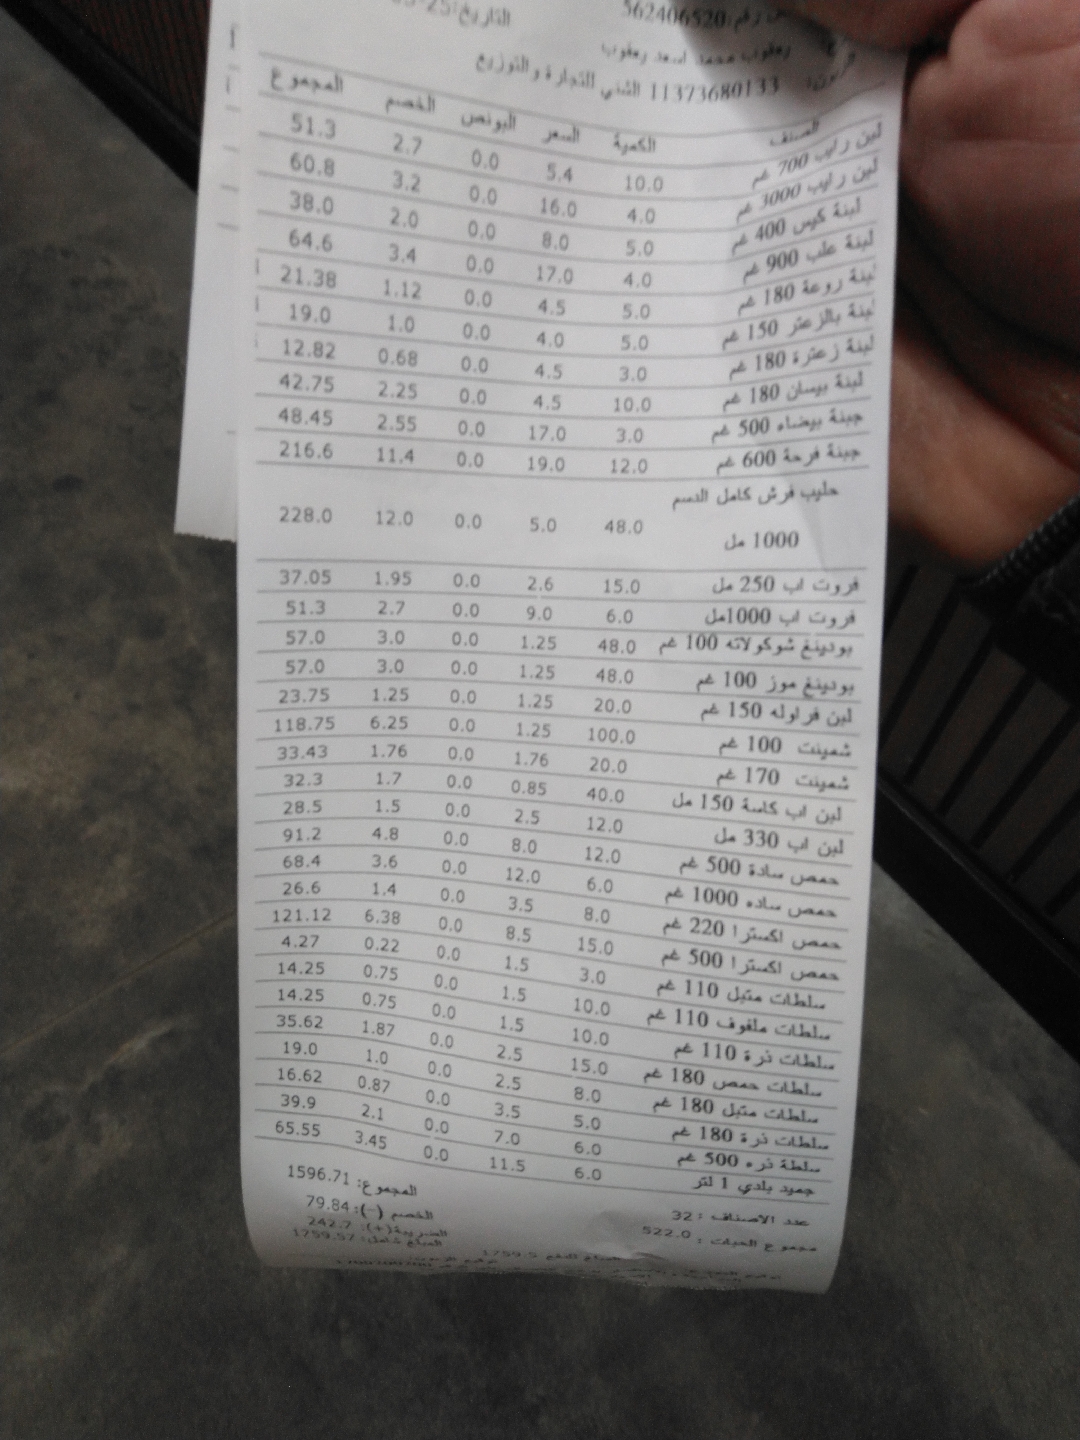 رقم: 562406520 التاريخ:
يعقوب محمد اسعد يعقوب
11373680133 الشني للتجارة والتوزيع
الصنف الكمية السعر البونص الخصم المجموع
لبن رايب 700 غم 10.0 5.4 0.0 2.7 51.3
لبن رايب 3000 غم 4.0 16.0 0.0 3.2 60.8
لبنة كيس 400 غم 5.0 8.0 0.0 2.0 38.0
لبنة علب 900 غم 4.0 17.0 0.0 3.4 64.6
لبنة روعة 180 غم 5.0 4.5 0.0 1.12 21.38
لبنة بالزعتر 150 غم 5.0 4.0 0.0 1.0 19.0
لبنة زعترة 180 غم 3.0 4.5 0.0 0.68 12.82
لبنة بيسان 180 غم 10.0 4.5 0.0 2.25 42.75
جبنة بيضاء 500 غم 3.0 17.0 0.0 2.55 48.45
جبنة فرحة 600 غم 12.0 19.0 0.0 11.4 216.6
حليب فرش كامل الدسم
1000 مل 48.0 5.0 0.0 12.0 228.0
فروت اب 250 مل 15.0 2.6 0.0 1.95 37.05
فروت اب 1000مل 6.0 9.0 0.0 2.7 51.3
بودينغ شوكولاته 100 غم 48.0 1.25 0.0 3.0 57.0
بودينغ موز 100 غم 48.0 1.25 0.0 3.0 57.0
لبن فراوله 150 غم 20.0 1.25 0.0 1.25 23.75
شمينت 100 غم 100.0 1.25 0.0 6.25 118.75
شمينت 170 غم 20.0 1.76 0.0 1.76 33.43
لبن اب كاسة 150 مل 40.0 0.85 0.0 1.7 32.3
لبن اب 330 مل 12.0 2.5 0.0 1.5 28.5
حمص سادة 500 غم 12.0 8.0 0.0 4.8 91.2
حمص ساده 1000 غم 6.0 12.0 0.0 3.6 68.4
حمص اكسترا 220 غم 8.0 3.5 0.0 1.4 26.6
حمص اكسترا 500 غم 15.0 8.5 0.0 6.38 121.12
سلطات متبل 110 غم 3.0 1.5 0.0 0.22 4.27
سلطات ملفوف 110 غم 10.0 1.5 0.0 0.75 14.25
سلطات ذرة 110 غم 10.0 1.5 0.0 0.75 14.25
سلطات حمص 180 غم 15.0 2.5 0.0 1.87 35.62
سلطات متبل 180 غم 8.0 2.5 0.0 1.0 19.0
سلطات ذرة 180 غم 5.0 3.5 0.0 0.87 16.62
سلطة ذره 500 غم 6.0 7.0 0.0 2.1 39.9
جميد بلدي 1 لتر 6.0 11.5 0.0 3.45 65.55
المجموع: 1596.71
عدد الاصناف : 32 الخصم (-): 79.84
مجموع الحبات : 522.0 الضريبة(+): 242.7
المبلغ شامل: 1759.57
المبلغ للدفع 1759.5